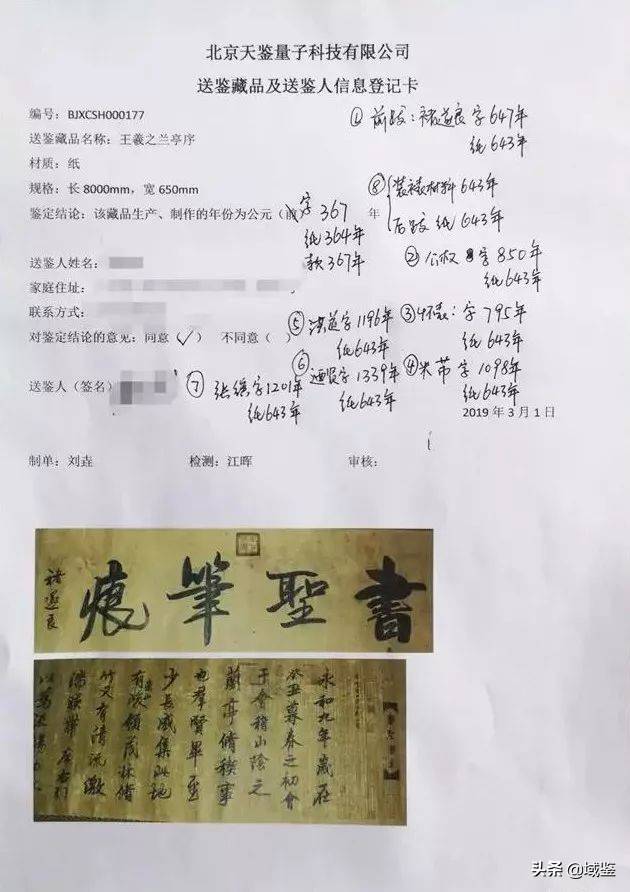 北京天鉴量子科技有限公司
送鉴藏品及送鉴人信息登记卡
编号：BJXCSH000177
① 前跋：褚遂良 字647年
纸643年
送鉴藏品名称：王羲之兰亭序
材质：纸
规格：长 8000mm，宽 650mm
⑧ 装裱材料643年
后跋 纸643年
鉴定结论：该藏品生产、制作的年份为公元（前 字367 年
纸364年
款367年
② 公权 字850年
纸643年
送鉴人姓名：
家庭住址：
联系方式：
⑤ 字1196年
纸643年
③ 字795年
纸643年
对鉴定结论的意见：同意（✓） 不同意（ ）
⑥ 迺贤字1339年
纸643年
④ 米芾 字1098年
纸643年
送鉴人（签名）
⑦ 字1201年
纸643年
2019 年 3 月 1 日
制单：刘垚 检测：江晖 审核：
書聖筆痕
褚遂良
永和九年歲在
癸丑暮春之初會
于會稽山陰之
蘭亭脩稧事
也羣賢畢至
少長咸集此地
有崇山峻領茂林脩
竹又有清流激
湍暎帶左右引
头条 @域鉴